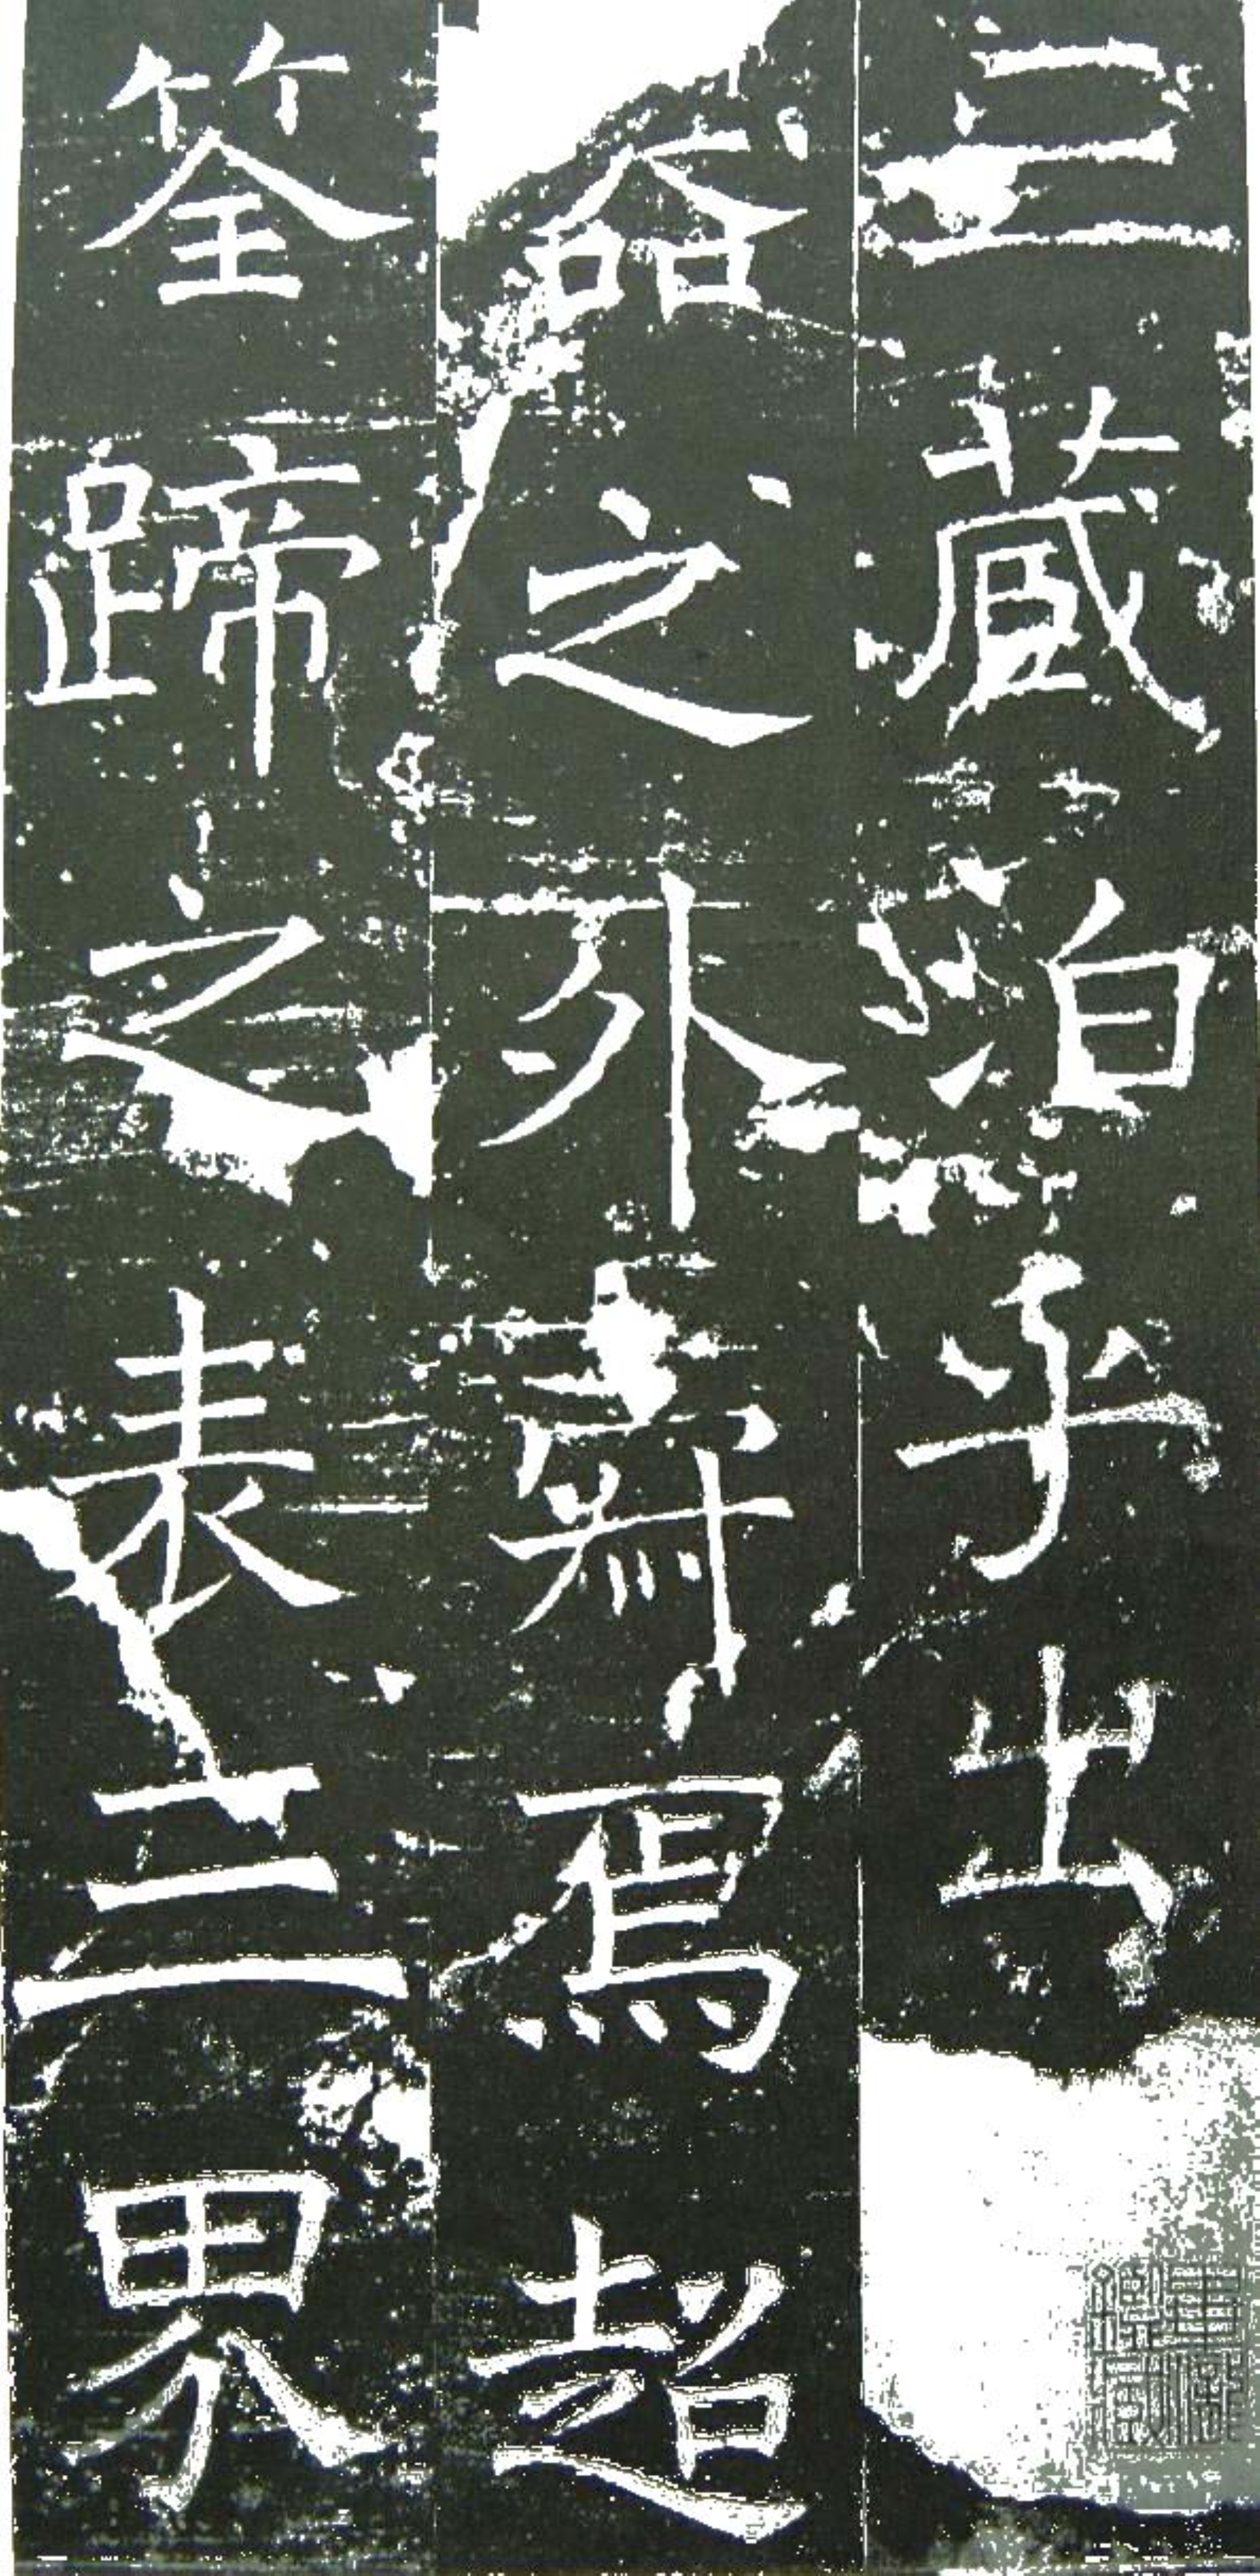 三藏泊乎出
之外寂焉超
筌蹄之表三界